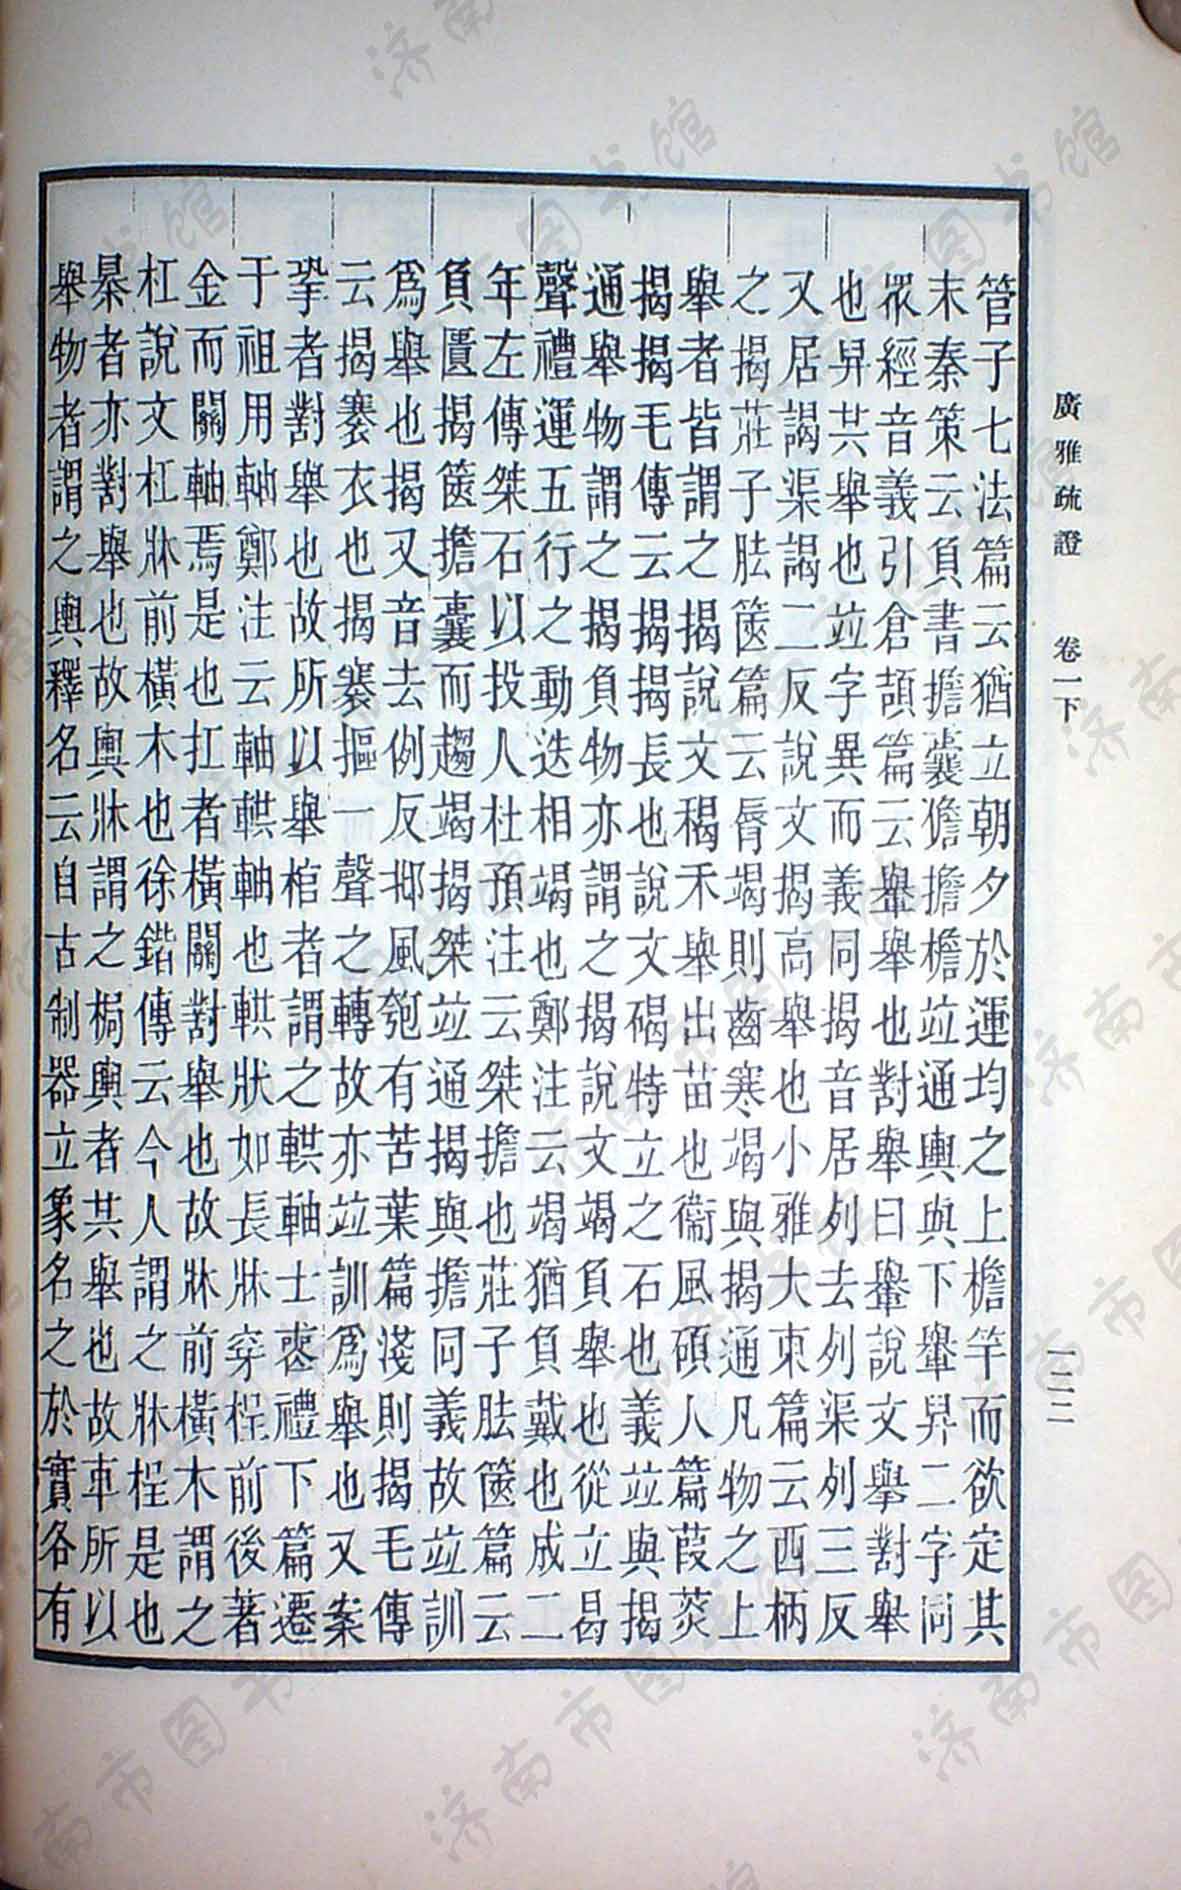 廣雅疏證　卷一下
一二二
管子七法篇云猶立朝夕於運均之上檐竿而欲定其
末秦策云負書擔囊儋擔檐竝通輿與下轝舁二字同
眾經音義引倉頡篇云轝舉也對舉曰轝說文舉對舉
也舁共舉也竝字異而義同揭音居列去列渠列三反
又居謁渠謁二反說文揭高舉也小雅大東篇云西柄
之揭莊子胠篋篇云脣竭則齒寒竭與揭通凡物之上
舉者皆謂之揭說文稭禾舉出苗也衞風碩人篇葭菼
揭揭毛傳云揭揭長也說文碣特立之石也義竝與揭
通舉物謂之揭負物亦謂之揭說文竭負舉也從立曷
聲禮運五行之動迭相竭也鄭注云竭猶負戴也成二
年左傳桀石以投人杜預注云桀擔也莊子胠篋篇云
負匱揭篋擔囊而趨竭揭桀竝通揭與擔同義故竝訓
爲舉也揭又音去例反邶風匏有苦葉篇淺則揭毛傳
云揭褰衣也揭褰摳一聲之轉故亦竝訓爲舉也又案
挙者對舉也故所以舉棺者謂之輁軸士喪禮下篇遷
于祖用軸鄭注云軸輁軸也輁狀如長牀穿桯前後著
金而關軸焉是也扛者橫關對舉也故牀前橫木謂之
杠說文杠牀前橫木也徐鍇傳云今人謂之牀桯是也
暴者亦對舉也故輿牀謂之梮輿者共舉也故車所以
舉物者謂之輿釋名云自古制器立象名之於實各有